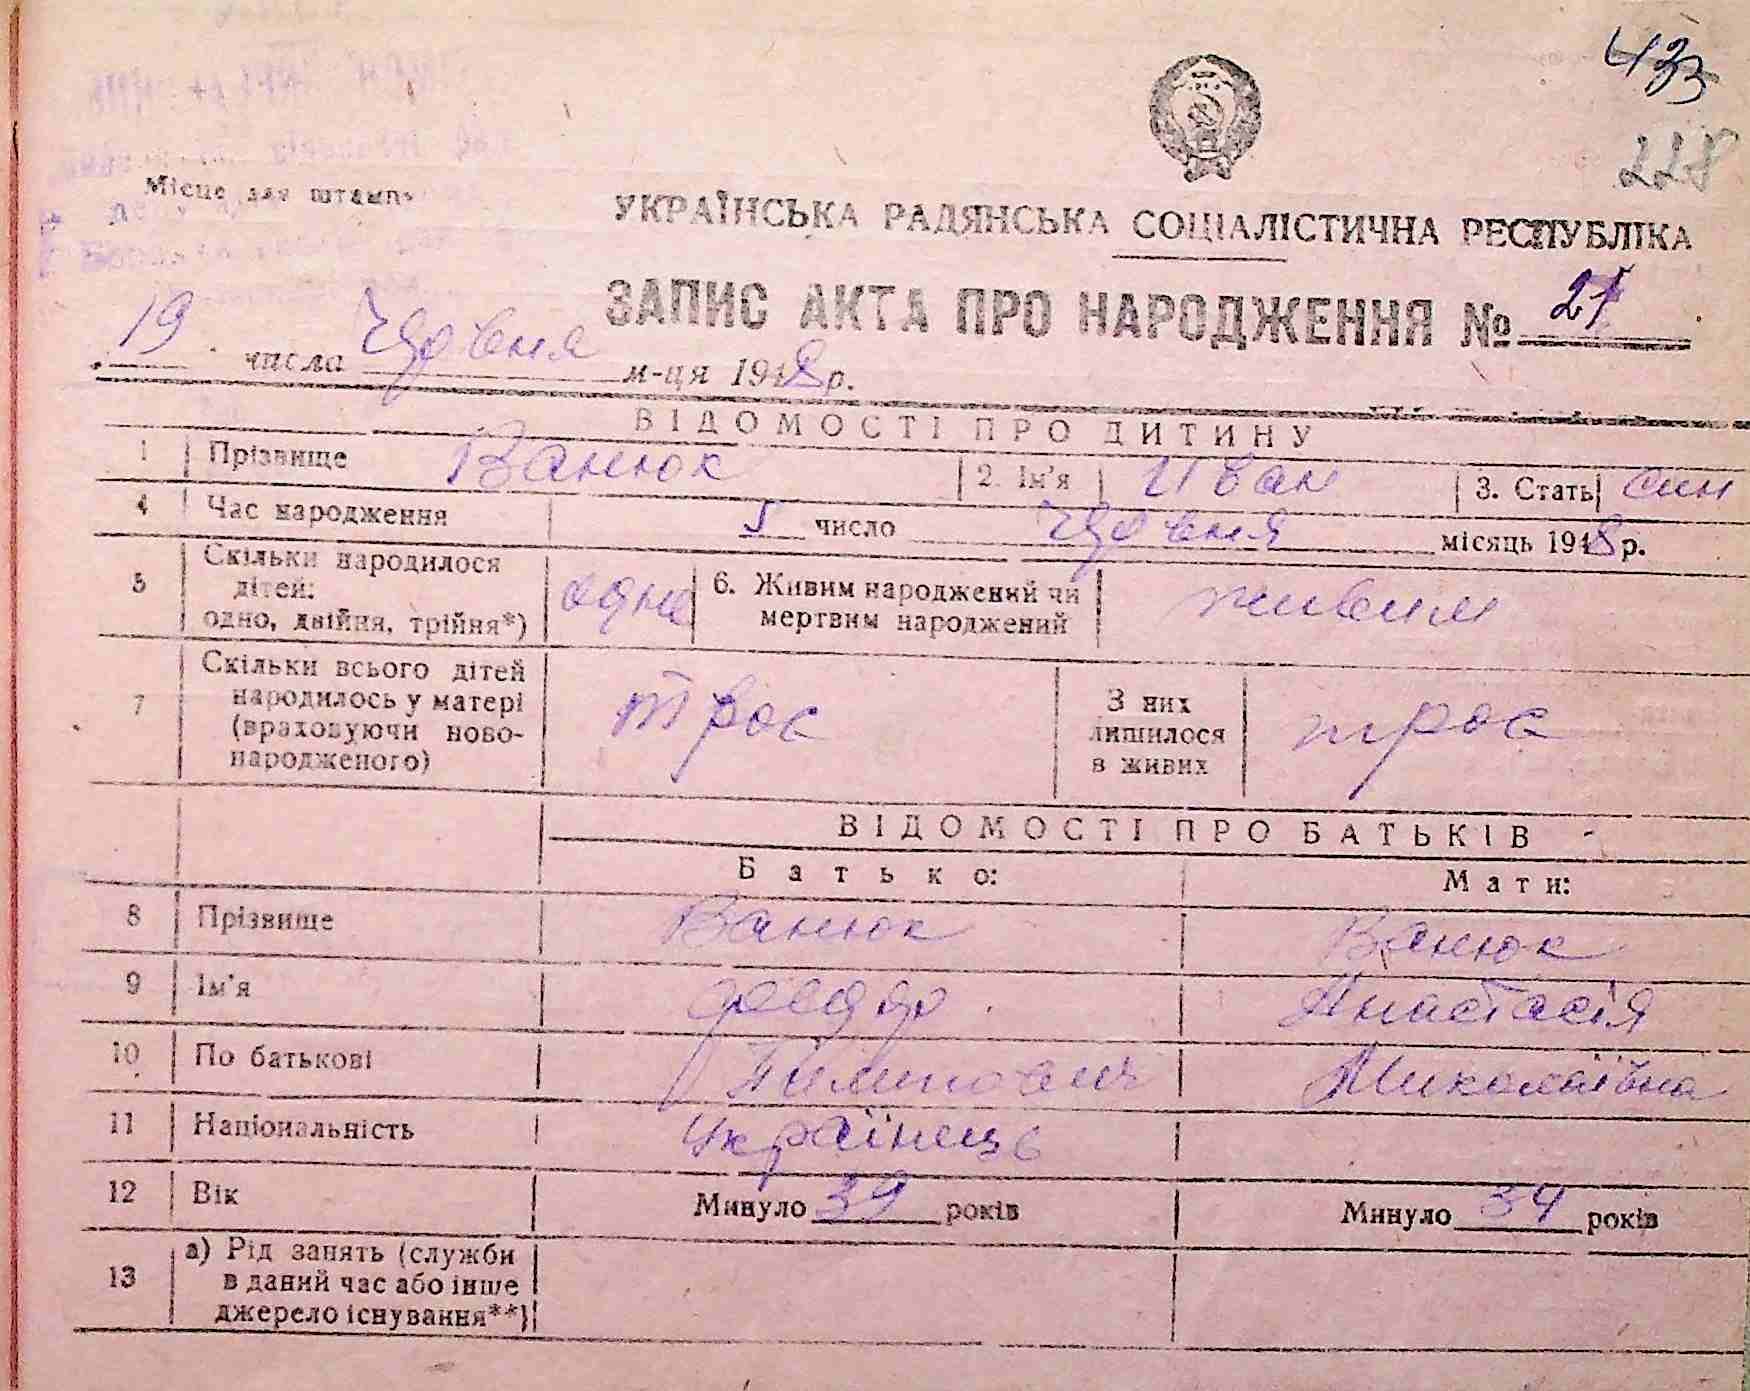 433
228
Місце для штампу
УКРАЇНСЬКА РАДЯНСЬКА СОЦІАЛІСТИЧНА РЕСПУБЛІКА
ЗАПИС АКТА ПРО НАРОДЖЕННЯ № 21
19 числа Червня м-ця 1948 р.
ВІДОМОСТІ ПРО ДИТИНУ
1 Прізвище Ванюк 2. Ім'я Иван 3. Стать син
4 Час народження 5 число Червня місяць 1948 р.
5 Скільки народилося дітей: одно, двійня, трійня*) одне 6. Живим народжений чи мертвим народжений живим
7 Скільки всього дітей народилось у матері (враховуючи ново-народженого) троє З них лишилося в живих троє
ВІДОМОСТІ ПРО БАТЬКІВ
Батько: Мати:
8 Прізвище Ванюк Ванюк
9 Ім'я Федор Анастасія
10 По батькові Пилипович Миколаївна
11 Національність Українець
12 Вік Минуло 39 років Минуло 34 років
13 а) Рід занять (служби в даний час або інше джерело існування**)